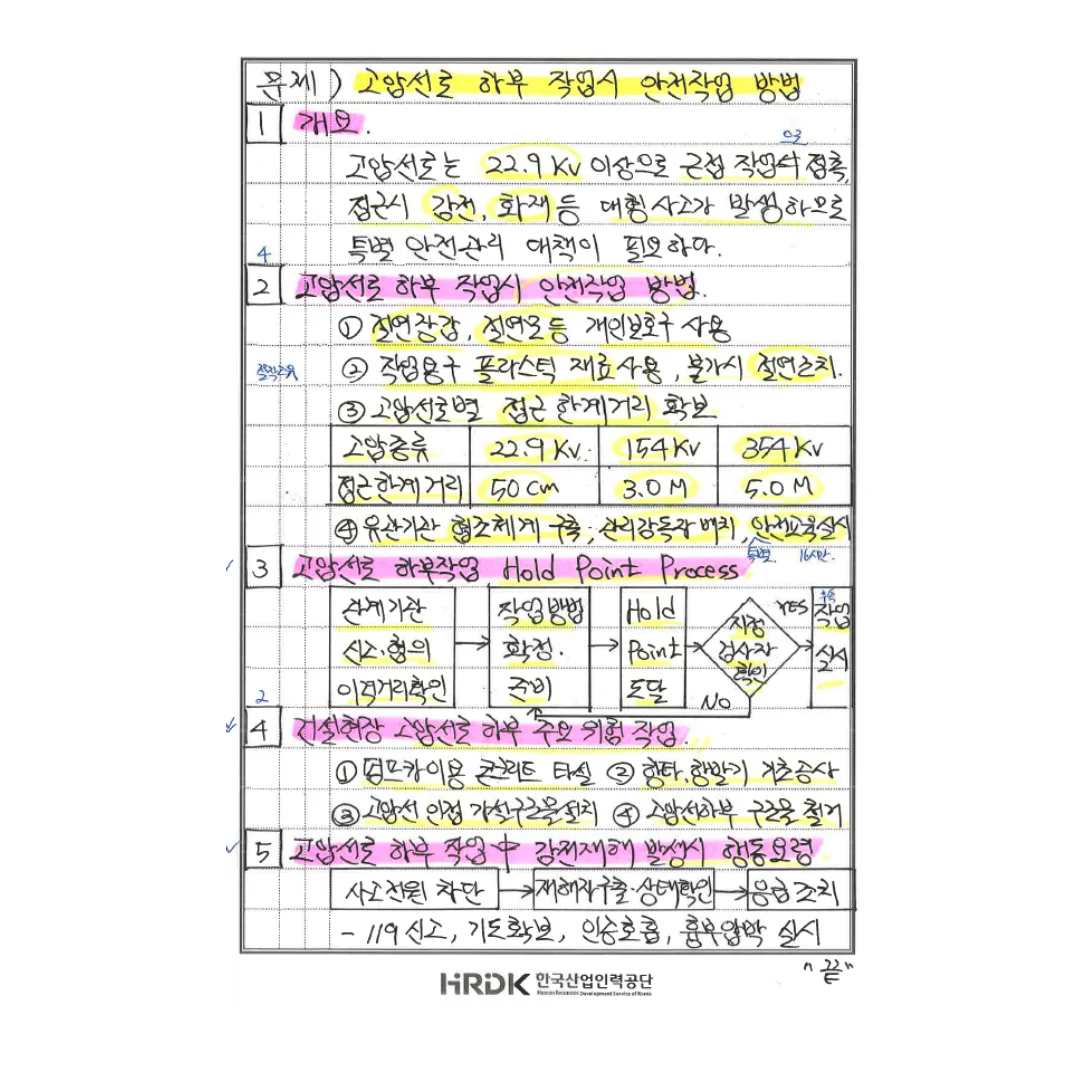 문제) 고압선로 하부 작업시 안전작업 방법
1 개요.
으로
고압선로는 22.9 Kv 이상으로 근접 작업시 접촉,
접근시 감전, 화재 등 대형사고가 발생하므로
4 특별 안전관리 대책이 필요하다.
2 고압선로 하부 작업시 안전작업 방법.
① 절연장갑, 절연모 등 개인보호구 사용
② 작업용구 플라스틱 재료사용, 불가시 절연조치.
③ 고압선로별 접근 한계거리 확보
고압종류 22.9 Kv. 154 Kv 354 Kv
접근한계거리 50 Cm 3.0 M 5.0 M
④ 유관기관 협조체계 구축, 관리감독자 배치, 안전교육실시
특별 16시간.
3 고압선로 하부작업 Hold Point Process
관계기관 신고·협의 이격거리확인
작업방법 확정. 준비
Hold Point 도달
지정 검사자 확인
YES
NO
후속 작업 실시
2
4 건설현장 고압선로 하부 주요 위험 작업.
① 펌프카이용 콘크리트 타설 ② 항타.항발기 기초공사
③ 고압선 인접 가설구조물설치 ④ 고압선하부 구조물 철거
5 고압선로 하부 작업 中 감전재해 발생시 행동요령.
사고전원 차단 → 재해자구출·상태확인 → 응급조치
- 119 신고, 기도확보, 인공호흡, 흉부압박 실시
"끝"
HRDK 한국산업인력공단
Human Resources Development Service of Korea